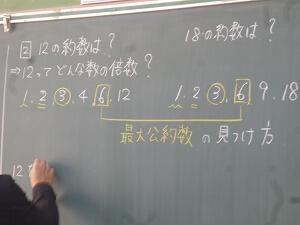 ② 12の約数は?
18の約数は?
⇒12ってどんな数の倍数?
1, 2, ③, 4, 6, 12
1, 2, ③, 6, 9, 18
最大公約数 の見つけ方
12